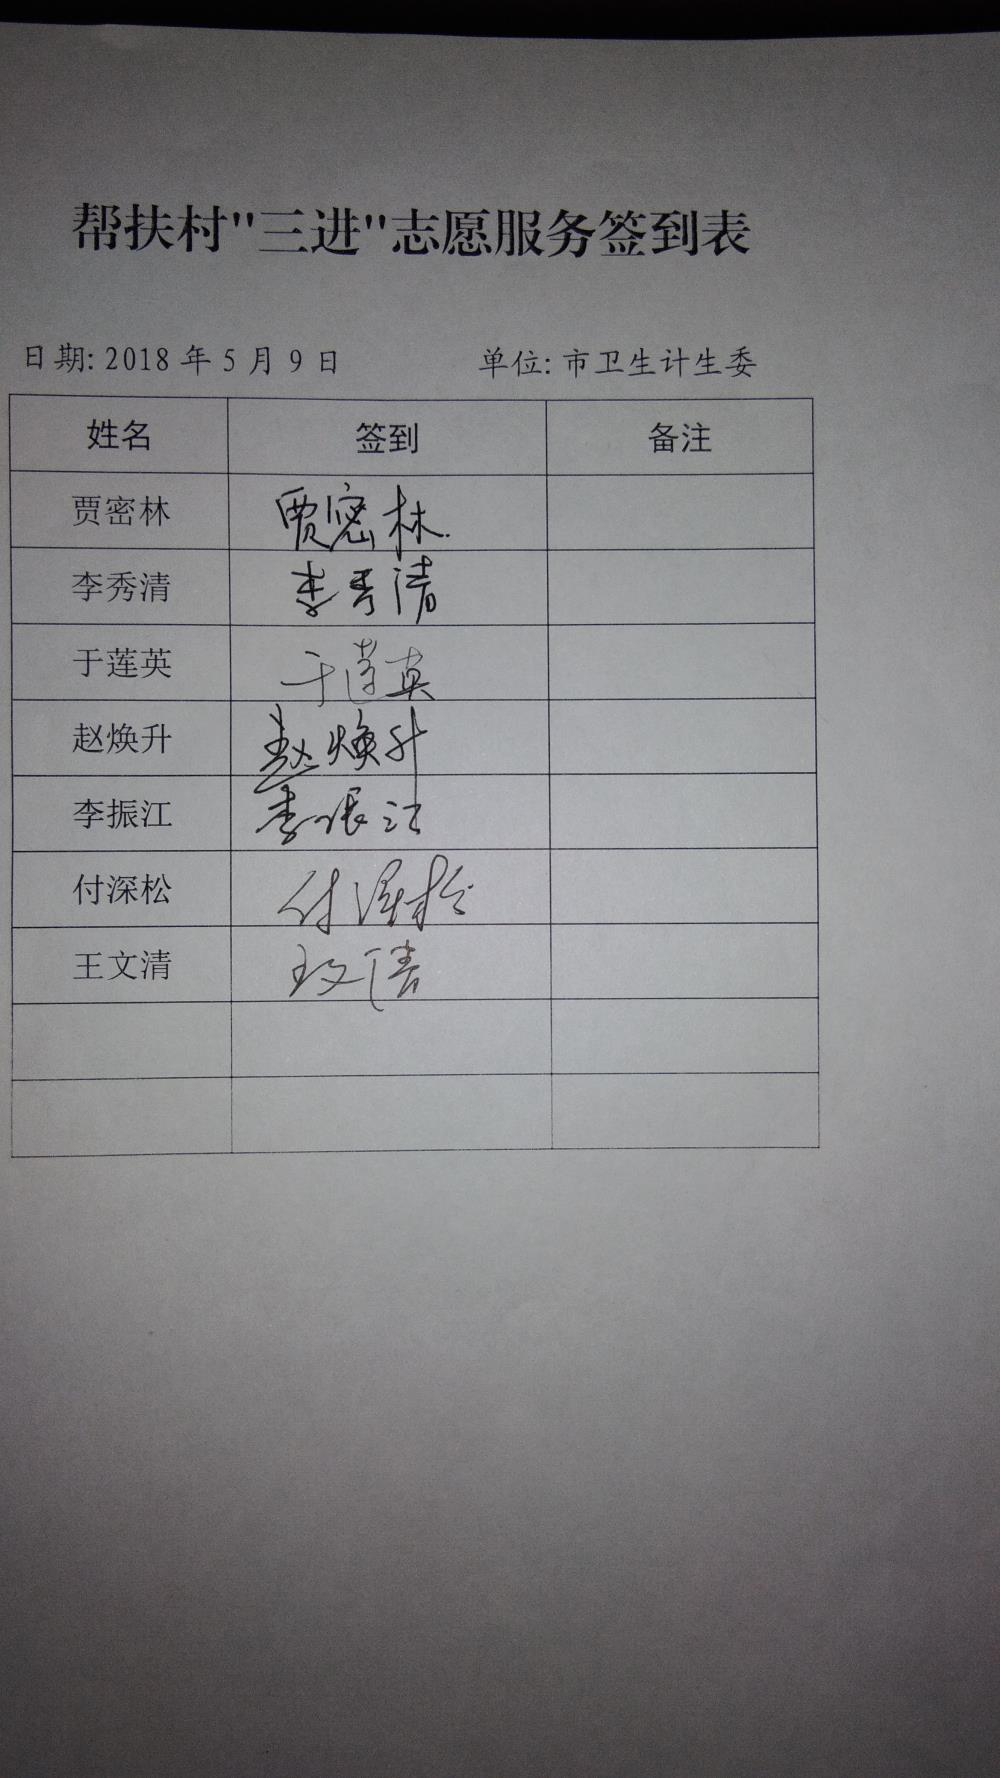 帮扶村"三进"志愿服务签到表
日期: 2018 年 5 月 9 日 单位: 市卫生计生委
姓名 签到 备注
贾密林 贾密林
李秀清 李秀清
于莲英 于莲英
赵焕升 赵焕升
李振江 李振江
付深松 付深松
王文清 王文清